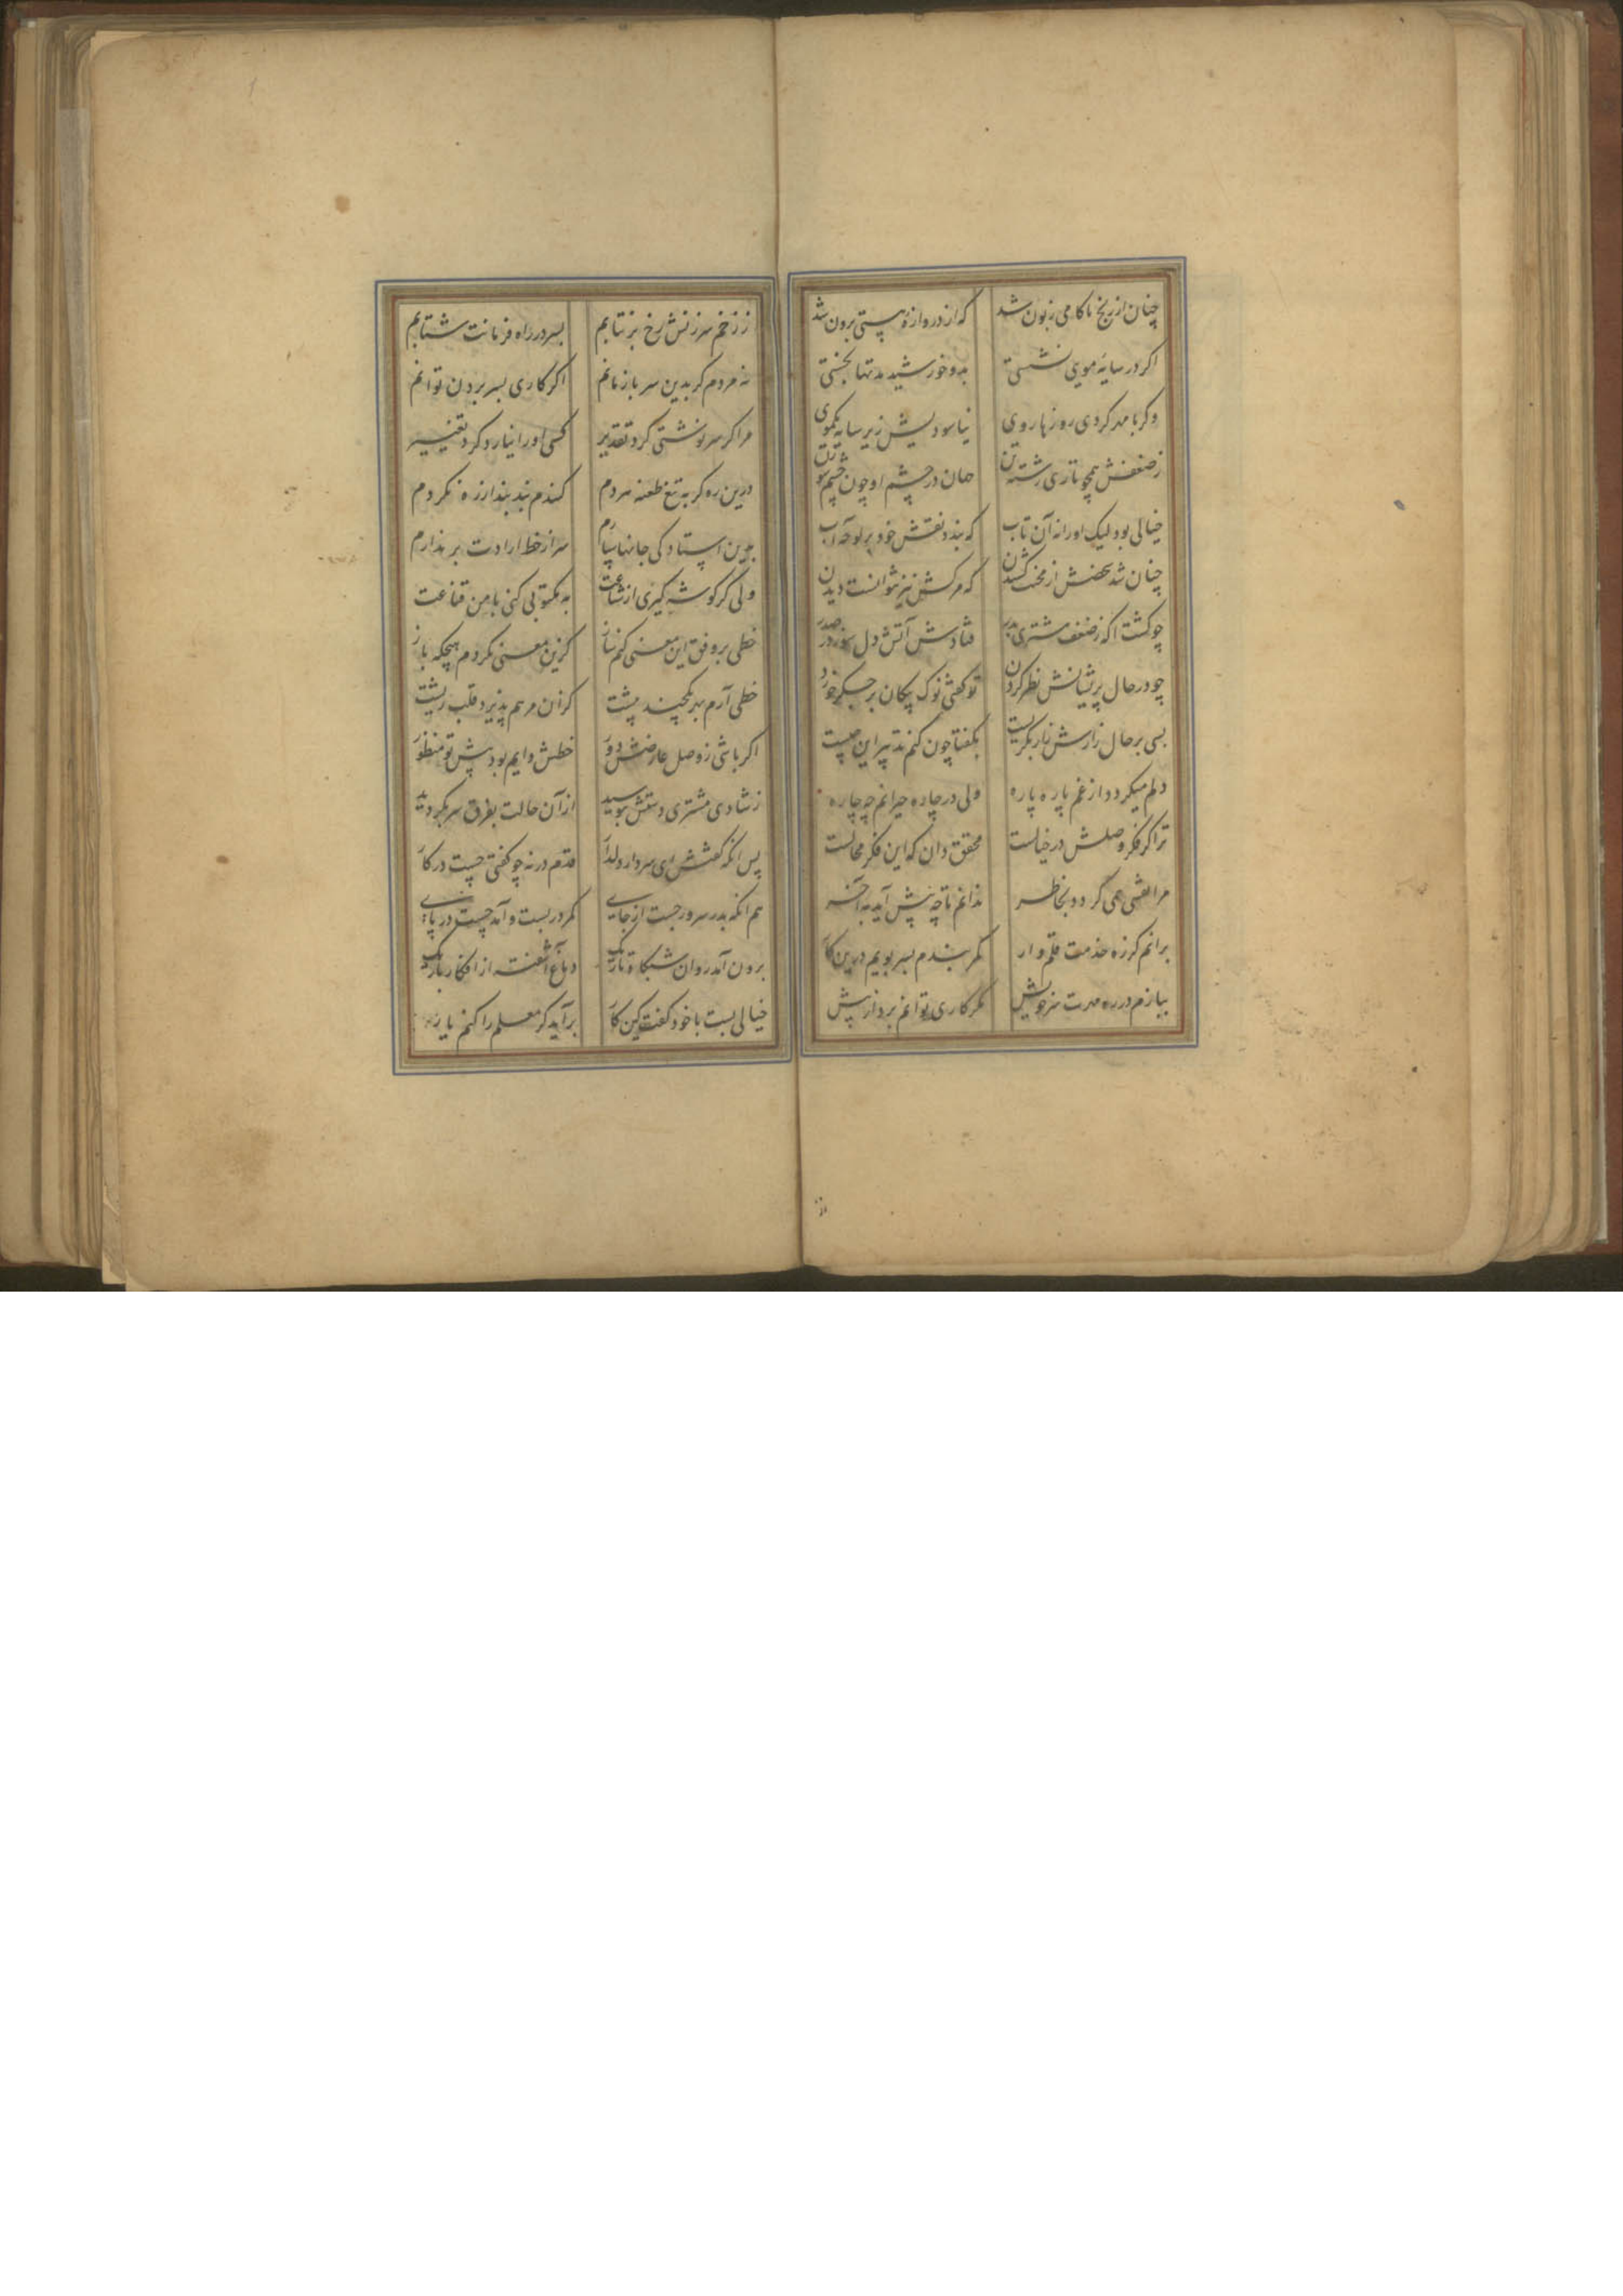 چنان از رنج ناکامی زبون شد که از دروازهٔ هستی برون شد
اکر در سایهٔ مویی نشستی بدو خورشید مدتها بجستی
وکر با مه کردی روزها روی نیاسودیش زیر سایه یکموی
ز ضعفش همچو تاری رشتهٔ تن جهان در چشم او چون چشم سوزن
خیالی بود لیک او را نه آن تاب که بندد نقش خود بر لوحهٔ آب
چنان شد شخصش از محنت کشیدن که مرکش نیز نتوانست دیدن
چو کشت اکه ز ضعف مشتری بدر فتادش آتش دل سوز در صدر
چو در حال پریشانش نظر کرد تو کفتی نوک پیکان بر جکر خورد
بسی بر حال زارش زار بکریست بکفتا چون کنم تدبیر این چیست
دلم میکردد از غم پاره پاره ولی در چاره حیرانم چه چاره
ترا کر فکر وصلش در خیالست محقق دان که این فکر محالست
مرا نقشی همی کردد بخاطر ندانم تا چه پیش آید به آخر
برانم کز ره خدمت قلم وار کمر بندم بسر پویم درین کار
ببازم در ره مهرت سر خویش مکر کاری توانم برد از پیش
ز زخم سرزنش رخ بر نتابم بسر در راه فرمانت شتابم
نه مردم کر بدین سر باز مانم اکر کاری بسر بردن توانم
مرا کر سرنوشتی کرد تقدیر کسی او را نیارد کرد تغییر
درین ره کر به تیغ طعنه مردم کندم بند بند از ره نکردم
بدین استادکی جانها سپارم سر از خط ارادت بر ندارم
ولی کر کوشه کیری از شناعت به مکتوبی کنی با من قناعت
خطی بر وفق این معنی کنم ساز کزین معنی نکردم هیچکه باز
خطی آرم بمهر پشت کزان مرهم پذیرد قلب ریشت
اکر باشی ز وصل عارضش دور خطش دایم بود پیش تو منظور
ز شادی مشتری دستش ببوسید از آن حالت بفرق سر بکردید
پس انکه کفتش ای سردار دلدار قدم در نه چو کفتی چیست در کار
هم انکه بدر سرور جست از جای کمر در بست و آمد چست در پای
برون آمد روان شبکاه تاریک دماغ آشفته از افکار باریک
خیالی بست با خود کفت کین کار برآید کر معلم را کنم یار